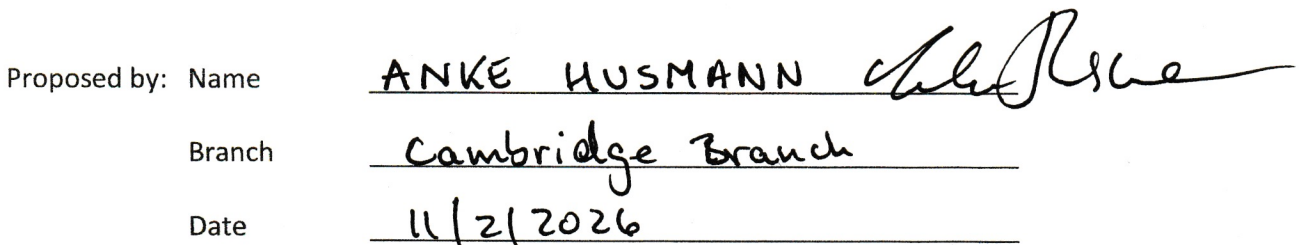 Proposed by: Name ANKE HUSMANN
Branch Cambridge Branch
Date 11/2/2026